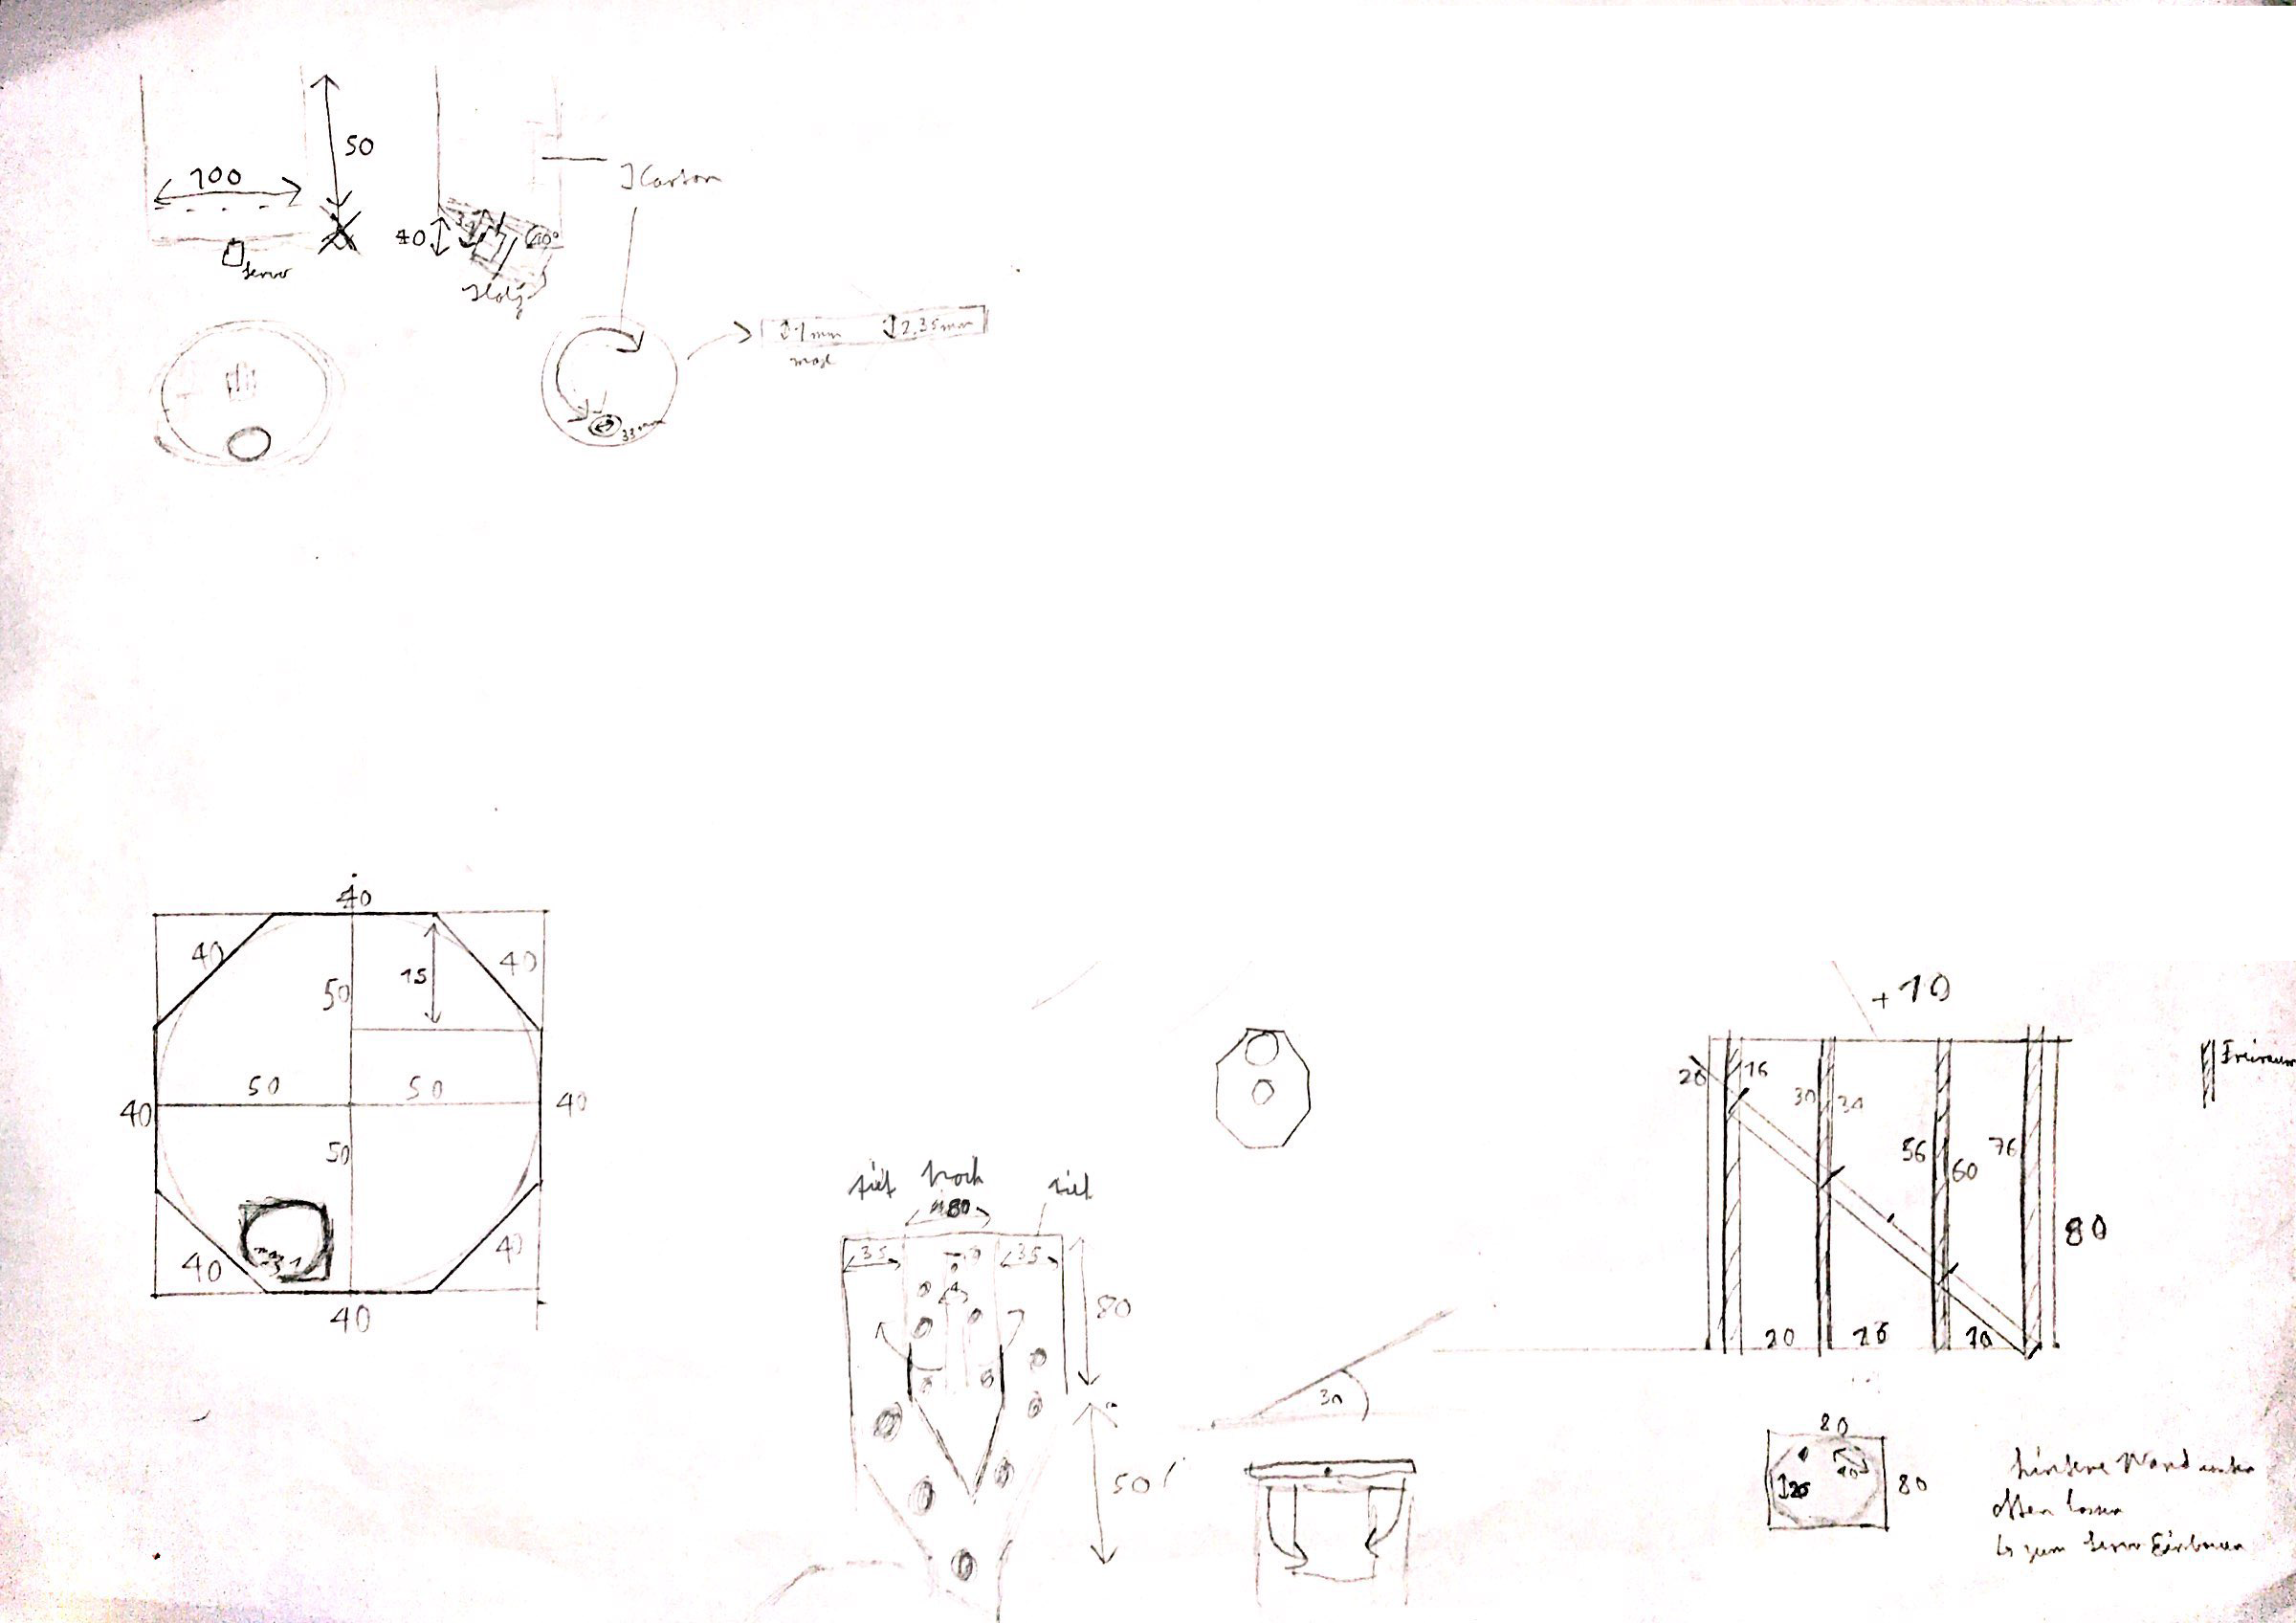 50
100
Karton
40
40°
Servo
Holz
1mm
2,35mm
max
33mm
40
40
40
15
50
50
50
40
40
50
31
40
40
40
tief
hoch
tief
80
35
35
80
50
30
+10
20
16
30
30
56
60
76
80
20
16
10
Freiraum
80
80
20
40
hintere Wand unten
offen lassen
zum Servo Einbauen